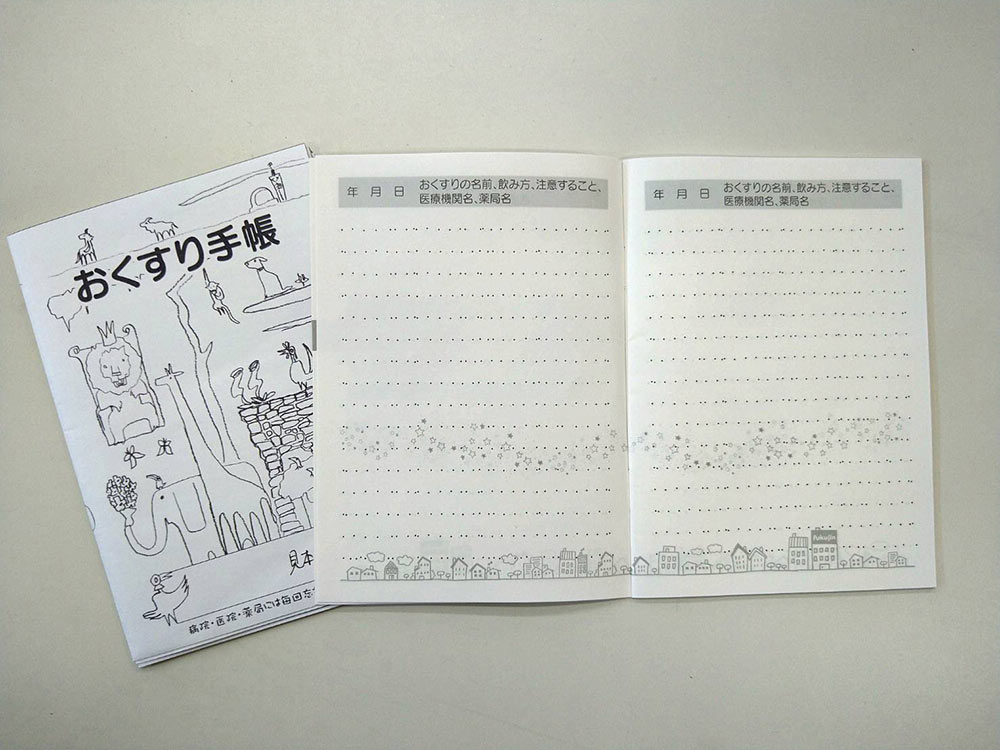 おくすり手帳
見本
病院・医院・薬局には毎回
年 月 日 おくすりの名前、飲み方、注意すること、
医療機関名、薬局名
年 月 日 おくすりの名前、飲み方、注意すること、
医療機関名、薬局名
fukujin